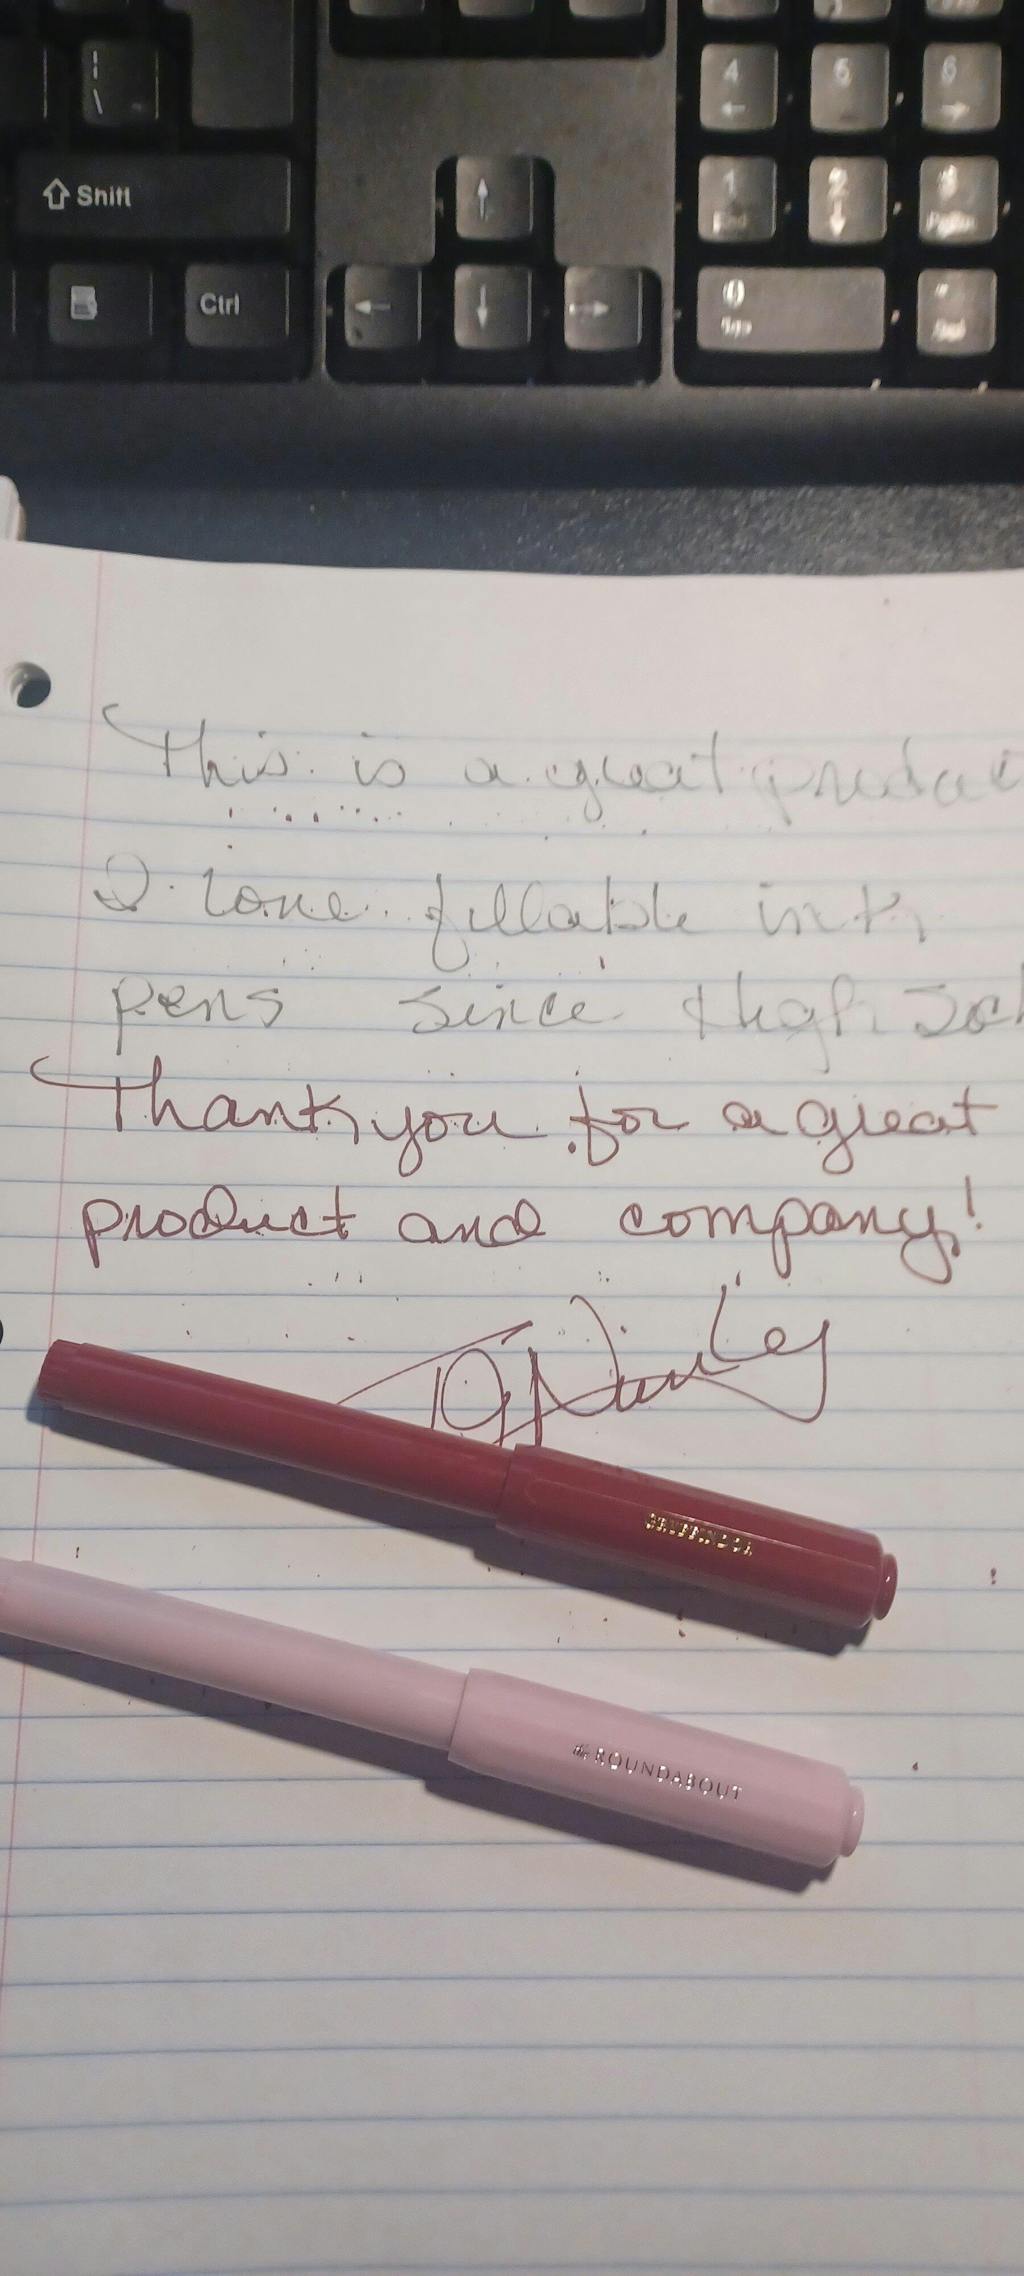 4 5 6
\
Shift
1 2
End
Ctrl
This is a great product
I love fillable ink
pens since High Sch
Thank you for a great
product and company!
the ROUNDABOUT